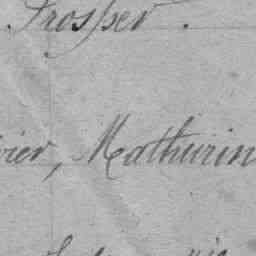 Prosper.
vier, Mathurin